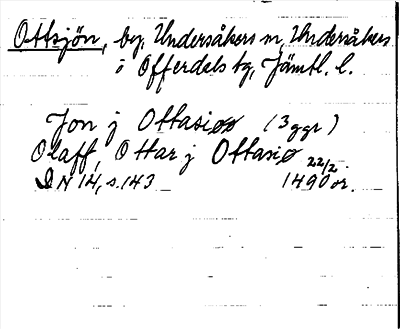 Ottsjön, by, Undersåkers sn, Undersåkers
o Offerdals tg, Jämtl. l.
Jon j Ottasiøø (3 ggr)
Olaff, Ottar j Ottasiø
DN 14, s. 143 22/2 1490 or.